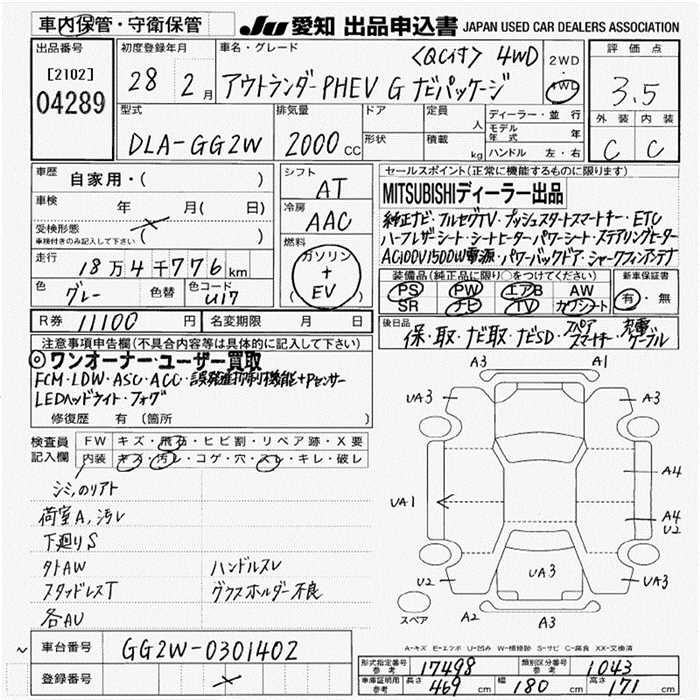 車内保管・守衛保管
JU 愛知 出品申込書 JAPAN USED CAR DEALERS ASSOCIATION
出品番号
[2102]
04289
初度登録年月
28年 2月
車名・グレード
<QC付> 4WD
アウトランダーPHEV G ナビパッケージ
2WD
4WD
評価点
3.5
外装 内装
C C
型式
DLA-GG2W
排気量
2000 CC
ドア
形状
定員 人
積載 kg
ディーラー・並行
モデル年式 年
ハンドル 左・右
車歴 自家用・( )
車検 年 月( 日)
受検形態
車検付きのみ記入して下さい ( )
走行 18万4千776km
色 グレー
色替
色コード U17
シフト AT
冷房 AAC
燃料 ガソリン + EV
R券 11100円
名変期限 月 日
セールスポイント(正常に機能するものに限ります)
MITSUBISHIディーラー出品
純正ナビ・フルセグTV・プッシュスタートスマートキー・ETC
ハーフレザーシート・シートヒーター・パワーシート・ステアリングヒーター
AC100V1500W電源・パワーバックドア・シャークフィンアンテナ
装備品(純正品に限り○をつけてください)
PS PW エアB AW
SR ナビ TV カワシート
新車保証書
有・無
後日品 保・取・ナビ取・ナビSD・スペアスマートキー・充電ケーブル
注意事項申告欄(不具合内容等は具体的に記入して下さい)
◎ワンオーナー・ユーザー買取
FCM・LDW・ASC・ACC・誤発進抑制機能+Pセンサー
LEDヘッドライト・フォグ
修復歴 有 〔箇所 〕
検査員記入欄
FW キズ・飛石・ヒビ割・リペア跡・X要
内装 キズ・汚レ・コゲ・穴・スレ・キレ・破レ
シミ,のリアト
荷室A,汚レ
下廻りS
タトAW
スタッドレスT
各AU
ハンドルスレ
グクスホルダー不良
A3 A1
UA3 A3
A4
UA1
A4
U2
UA3
U2 UA3
A2 A3
スペア
A-キズ E-エクボ U-凹み W-補修跡 S-サビ C-腐食 XX-交換済
車台番号 GG2W-0301402
登録番号
形式指定番号 参考 17498
類別区分番号 参考 1043
車庫証明用 参考 長さ 469cm 幅 180cm 高さ 171cm